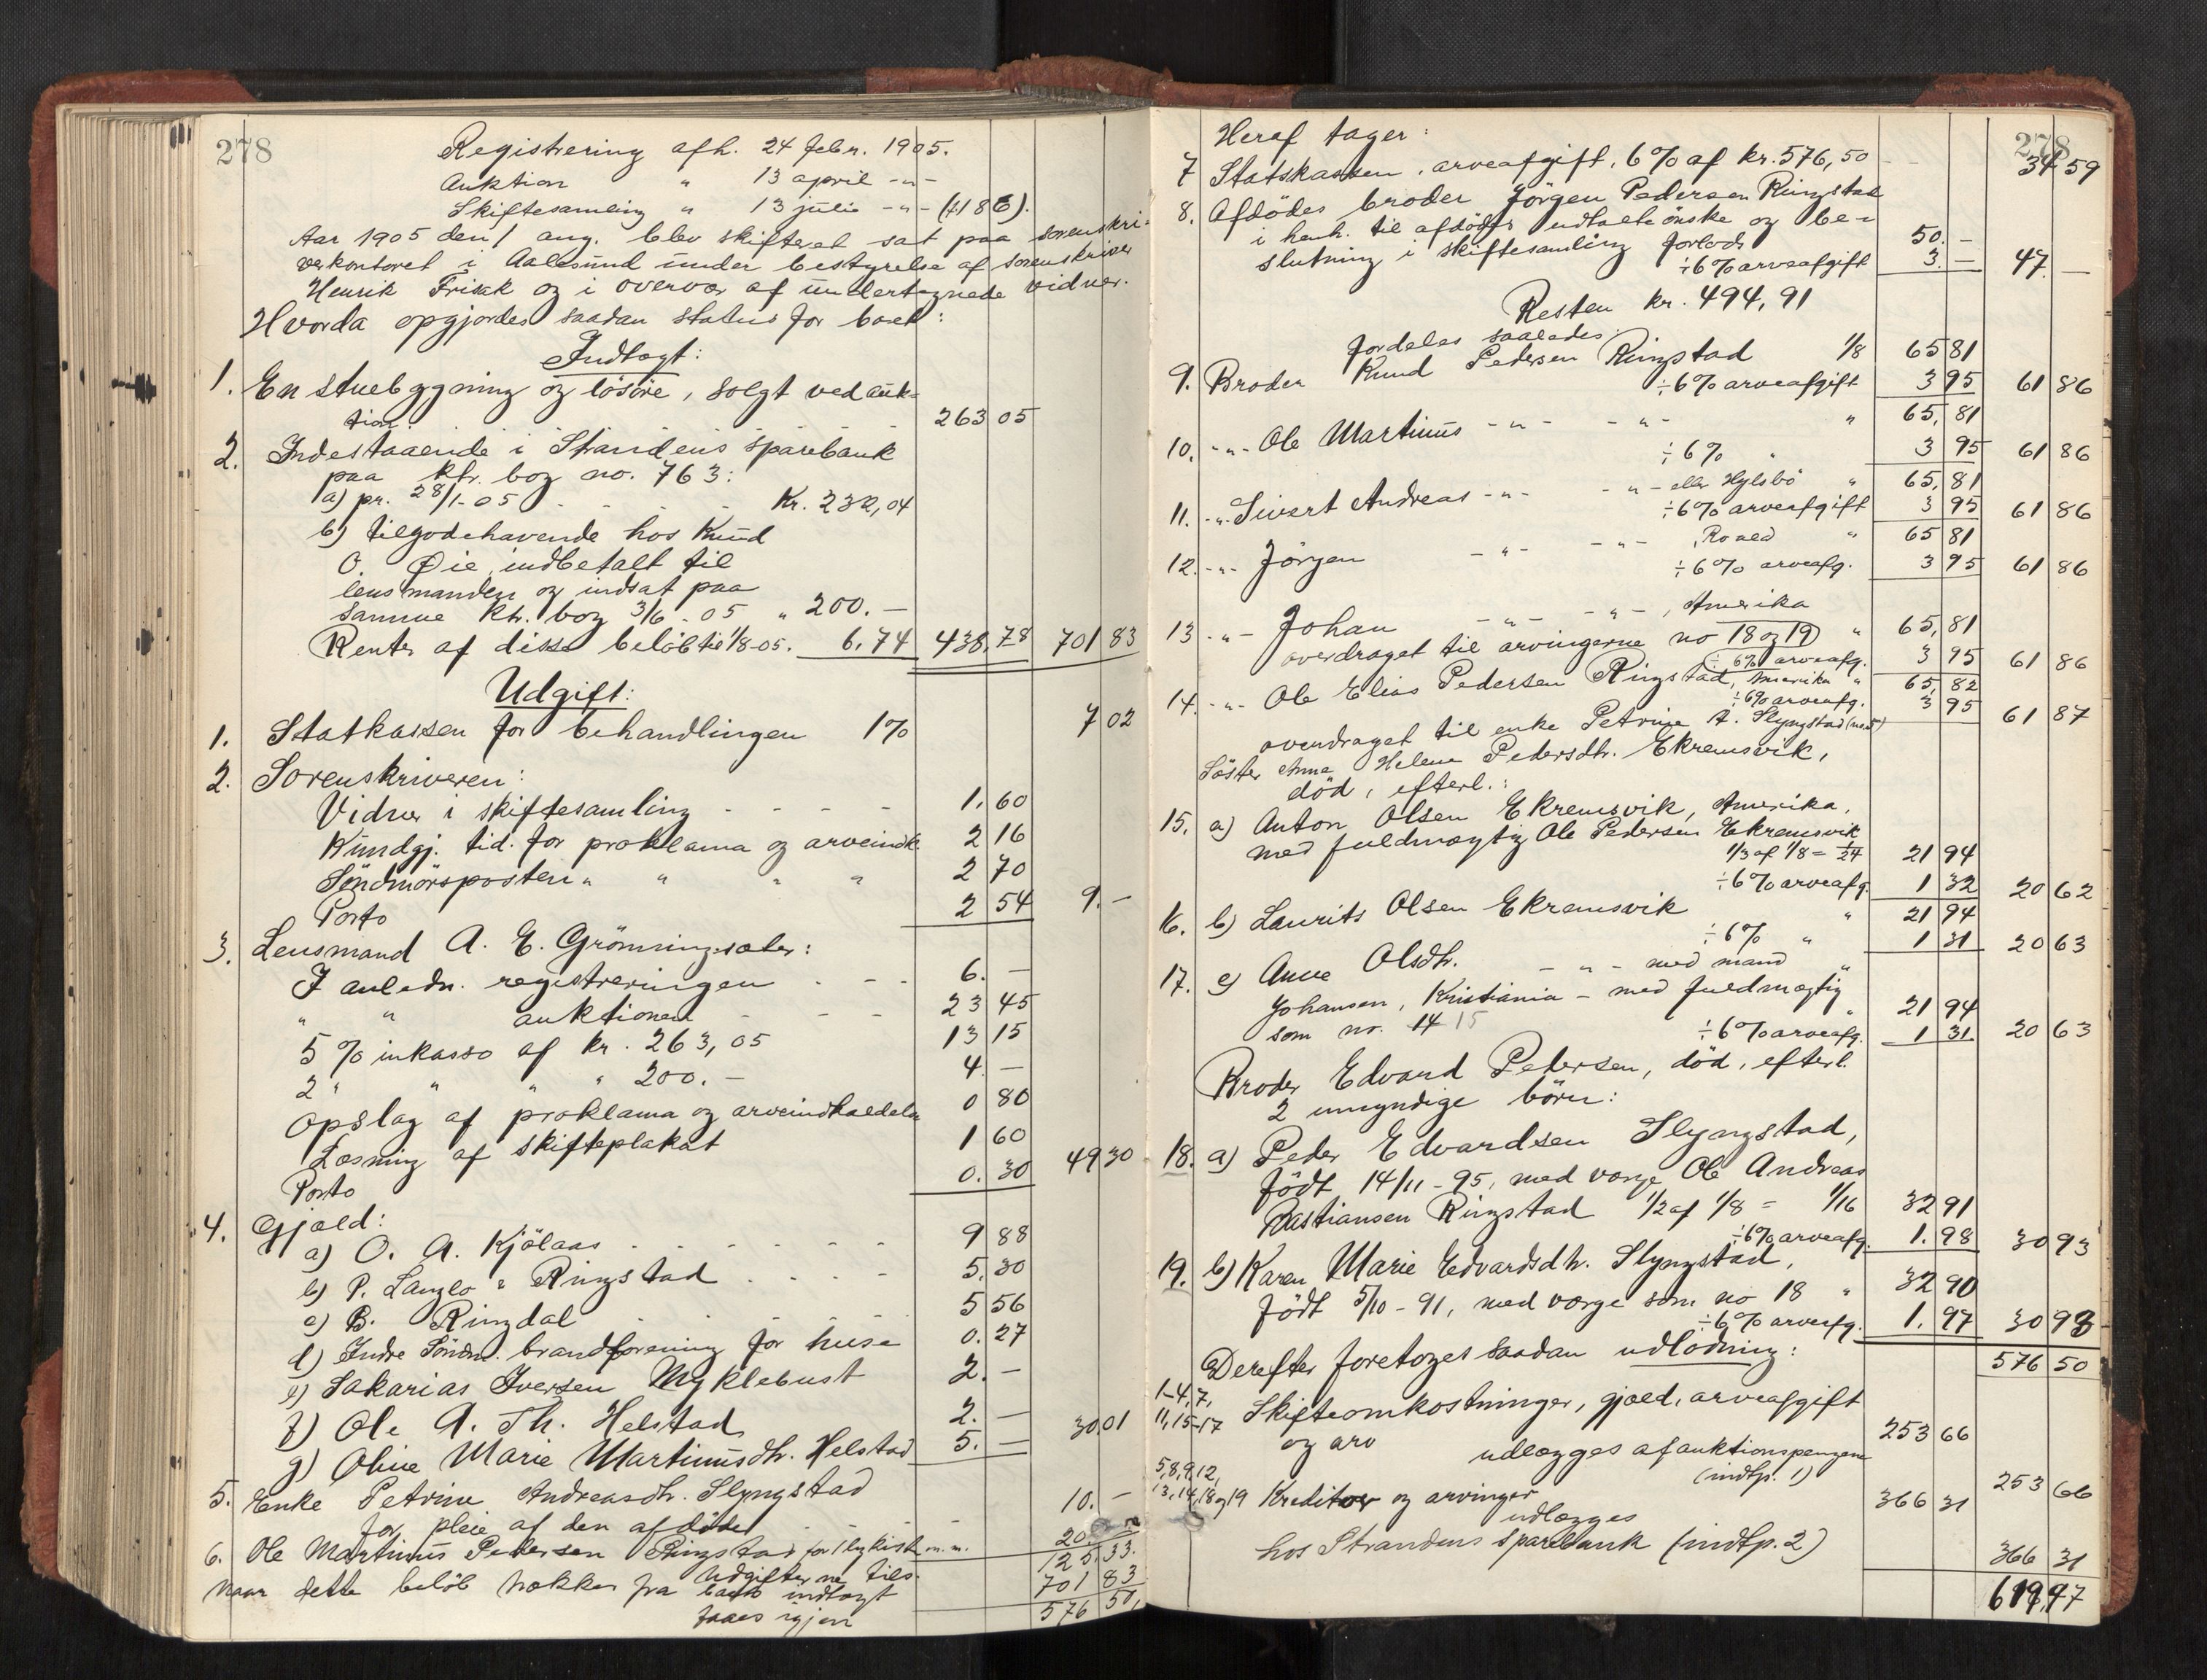 278
Registrering afh. 24 febr. 1905.
Auktion " 13 april -"-
Skiftesamling " 13 julie -"- (f186).
Aar 1905 den 1 aug. blev skifteret sat paa sorenskri-
verkontoret i Aalesund under bestyrelse af sorenskriver
Henrik Frisak og i overvær af undertegnede vidner.
Hvorda opgjordes saadan status for boet:
Indtægt:
1. En stuebygning og lösöre, solgt ved auk-
tion 263 05
2. Indestaaende i Strandens sparebank
paa ktr. bog no. 763:
a) pr. 28/1-05 . . . . Kr. 232,04
b) tilgodehavende hos Knud
O. Øie, indbetalt til
lensmanden og indsat paa
samme ktr. bog 3/6-05 " 200.-
Renter af disse beløb til 1/8-05. 6,74 438,78 701 83
Udgift:
1. Statkassen for behandlingen 1% 7 02
2. Sorenskriveren:
Vidner i skiftesamling - - - - 1,60
Kundgj. tid. for proklama og arveindk. 2 16
Søndmørsposten " " " " 2 70
Porto 2 54 9.-
3. Lensmand A. E. Grönningsæter:
I anledn. registreringen . - - 6.-
" " auktionen - - - 23 45
5 % inkasso af kr. 263,05 13 15
2 " " " " 200.- 4.-
Opslag af proklama og arveindkaldelse 0 80
Læsning af skifteplakat 1 60
Porto 0.30 49 30
4. Gjæld:
a) O. A. Kjölaas . - - - - 9 88
b) P. Langlo " Ringstad . . . - 5.30
c) B. Ringdal . - - - 5 56
d) Indre Søndm. brandforening for huse 0.27
e) Sakarias Iversen Myklebust 2.-
f) Ole A. Th. Helstad 2.-
g) Oline Marie Martinusdtr. Helstad 5.- 30 01
5. Enke Petrine Andreasdtr. Slyngstad
for pleie af den afdöde . - - - 10.-
6. Ole Martinus Pedersen Ringstad for ligkiste m.m. 20.-
Udgifterne tils. 125.33.
Naar dette belöb trækkes fra boets indtægt 701 83
faaes igjen 576 50,
278
Heraf tager:
7 Statskassen, arveafgift, 6% af kr. 576,50 -- 34 59
8. Afdödes broder Jörgen Pedersen Ringstad
i henh. til afdödes udtalte önske og be-
slutning i skiftesamling forlods 50.-
÷6% arveafgift 3.- 47.-
Resten kr. 494,91
fordeles saaledes:
9. Broder Knud Pedersen Ringstad 1/8 65 81
÷6% arveafgift 3 95 61 86
10. -"- Ole Martinus -"- -"- " 65,81
÷6% " 3 95 61 86
11. -"- Sivert Andreas -"- -"- eller Hylsbö " 65,81
÷6% arveafgift 3 95 61 86
12. -"- Jörgen -"- -"- , Roald " 65 81
÷6% arveafg. 3 95 61 86
13 -"- Johan -"- -"- , Amerika
overdraget til arvingerne no 18 og 19 " 65,81
÷6% arveafg. 3 95 61 86
14. -"- Ole Elias Pedersen Ringstad, Amerika " 65,82
÷6% arveafg. 3 95 61 87
overdraget til enke Petrine A. Slyngstad (no 5)
Söster Anne Helene Pedersdtr. Ekremsvik,
död, efterl.:
15. a) Anton Olsen Ekremsvik, Amerika,
med fuldmægtig Ole Pedersen Ekremsvik
1/3 af 1/8 = 1/24 21 94
÷6% arveafg. 1 32 20 62
16. b) Laurits Olsen Ekremsvik " 21 94
÷6% " 1 31 20 63
17. c) Anne Olsdtr. -"- med mand
Johansen, Kristiania - med fuldmægtig
som no. 14 15 " 21 94
÷6% arveafg. 1 31. 20 63
Broder Edvard Pedersen, död, efterl.
2 umyndige börn:
18. a) Peder Edvardsen Slyngstad,
födt 14/11-95, med værge Ole Andreas
Bastiansen Ringstad 1/2 af 1/8 = 1/16 32 91
÷6% arveafg. 1.98 30 93
19. b) Karen Marie Edvardsdtr. Slyngstad,
födt 5/10-91, med værge som no 18 " 32 90
÷6% arveafg. 1.97 30 93
Derefter foretoges saadan udlodning: 576 50
1-4,7,
11,15-17 Skifteomkostninger, gjæld, arveafgift
og arv udlægges af auktionspengene 253 66
(indtp. 1) 253 66
5,8,9,12,
13,14,18 og 19 Kreditor og arvinger 366 31
udlægges
hos Strandens sparebank (indtp. 2) 366 31
619,97